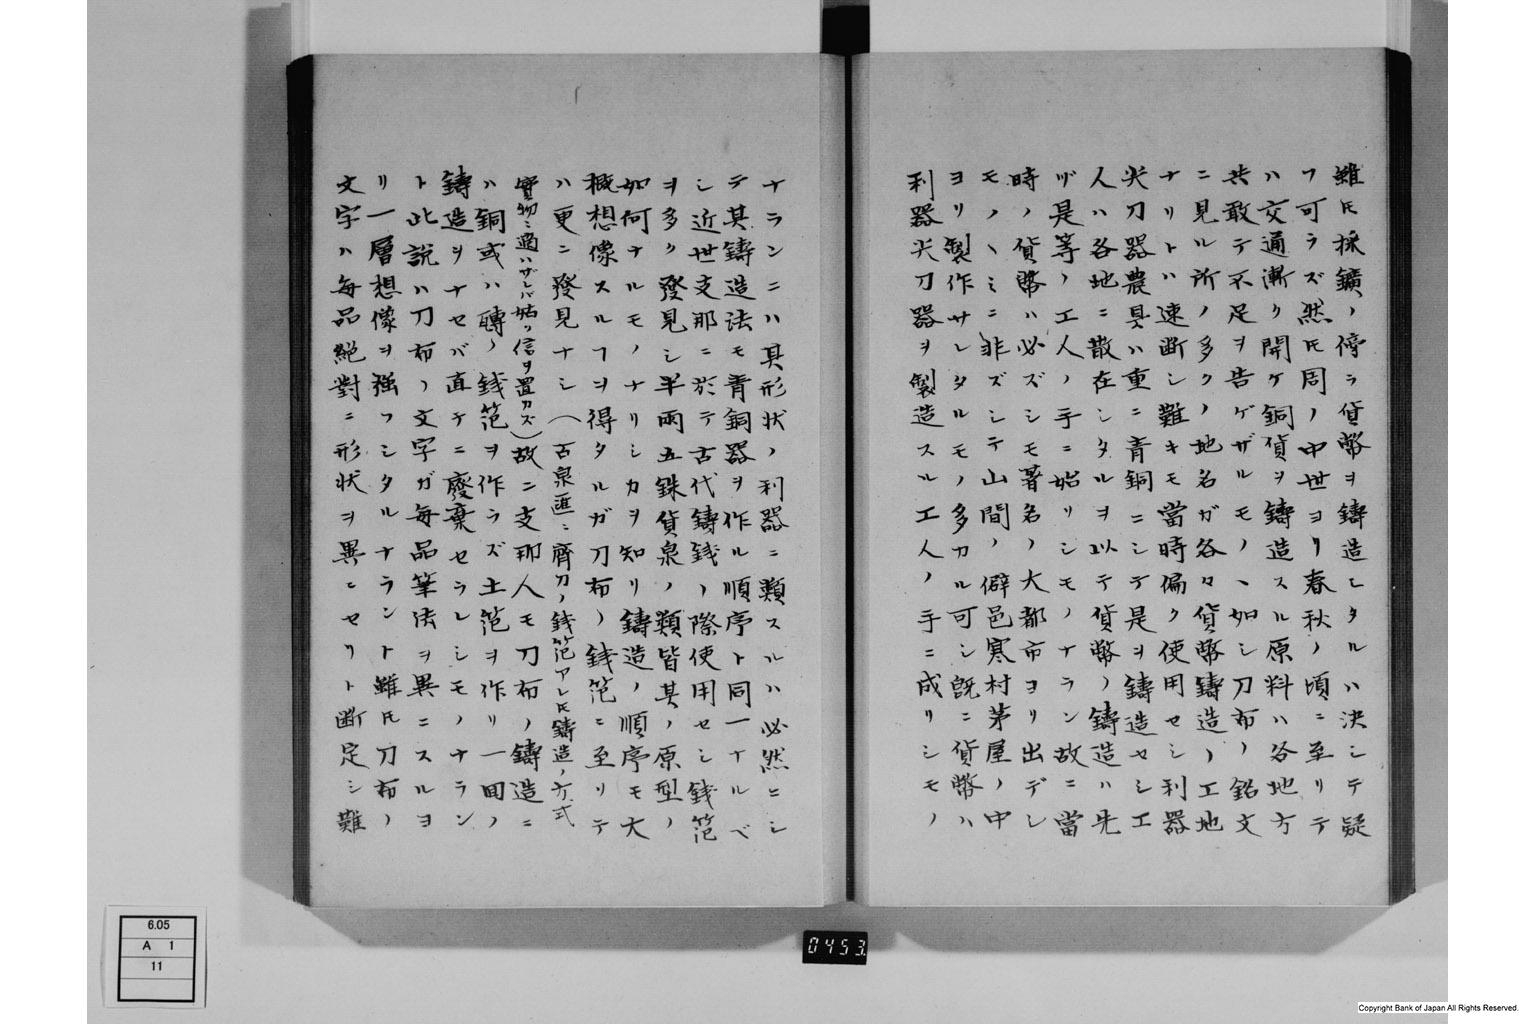 雖𪜈採鑛ノ傍ラ貨幣ヲ鑄造シタルハ決シテ疑
フ可ラズ然𪜈周ノ中世ヨリ春秋ノ頃ニ至リテ
ハ交通漸ク開ケ銅貨ヲ鑄造スル原料ハ各地方
共敢テ不足ヲ告ゲザルモノヽ如シ刀布ノ銘文
ニ見ル所ノ多クノ地名ガ各々貨幣鑄造ノ工地
ナリトハ速断シ難キモ當時偏ク使用セシ利器
尖刀器農具ハ重ニ青銅ニシテ是ヲ鑄造セシ工
人ハ各地ニ散在シタルヲ以テ貨幣ノ鑄造ハ先
ヅ是等ノ工人ノ手ニ始リシモノナラン故ニ當
時ノ貨幣ハ必ズシモ著名ノ大都市ヨリ出デシ
モノヽミニ非ズシテ山間ノ僻邑寒村茅屋ノ中
ヨリ製作サレタルモノ多カル可シ既ニ貨幣ハ
利器尖刀器ヲ製造スル工人ノ手ニ成リシモノ
ナランニハ其形状ノ利器ニ類スルハ必然ニシ
テ其鑄造法モ青銅器ヲ作ル順序ト同一ナルベ
シ近世支那ニ於テ古代鑄銭ノ際使用セシ銭笵
ヲ多ク發見シ半兩五銖貨泉ノ類皆其ノ原型ノ
如何ナルモノナリシカヲ知リ鑄造ノ順序モ大
概想像スルヿヲ得タルガ刀布ノ銭笵ニ至リテ
ハ更ニ發見ナシ(古泉匯ニ齊刀ノ銭笵アレ𪜈鑄造ノ方式
實物ニ適ハザレバ姑ク信ヲ置カズ)故ニ支那人モ刀布ノ鑄造ニ
ハ銅或ハ磚ノ銭笵ヲ作ラズ土笵ヲ作リ一回ノ
鑄造ヲナセバ直チニ廢棄セラレシモノナラン
ト此説ハ刀布ノ文字ガ毎品筆法ヲ異ニスルヨ
リ一層想像ヲ強フシタルナラント雖𪜈刀布ノ
文字ハ毎品絶對ニ形状ヲ異ニセリト断定シ難
0453
6.05
A 1
11
Copyright Bank of Japan All Rights Reserved.